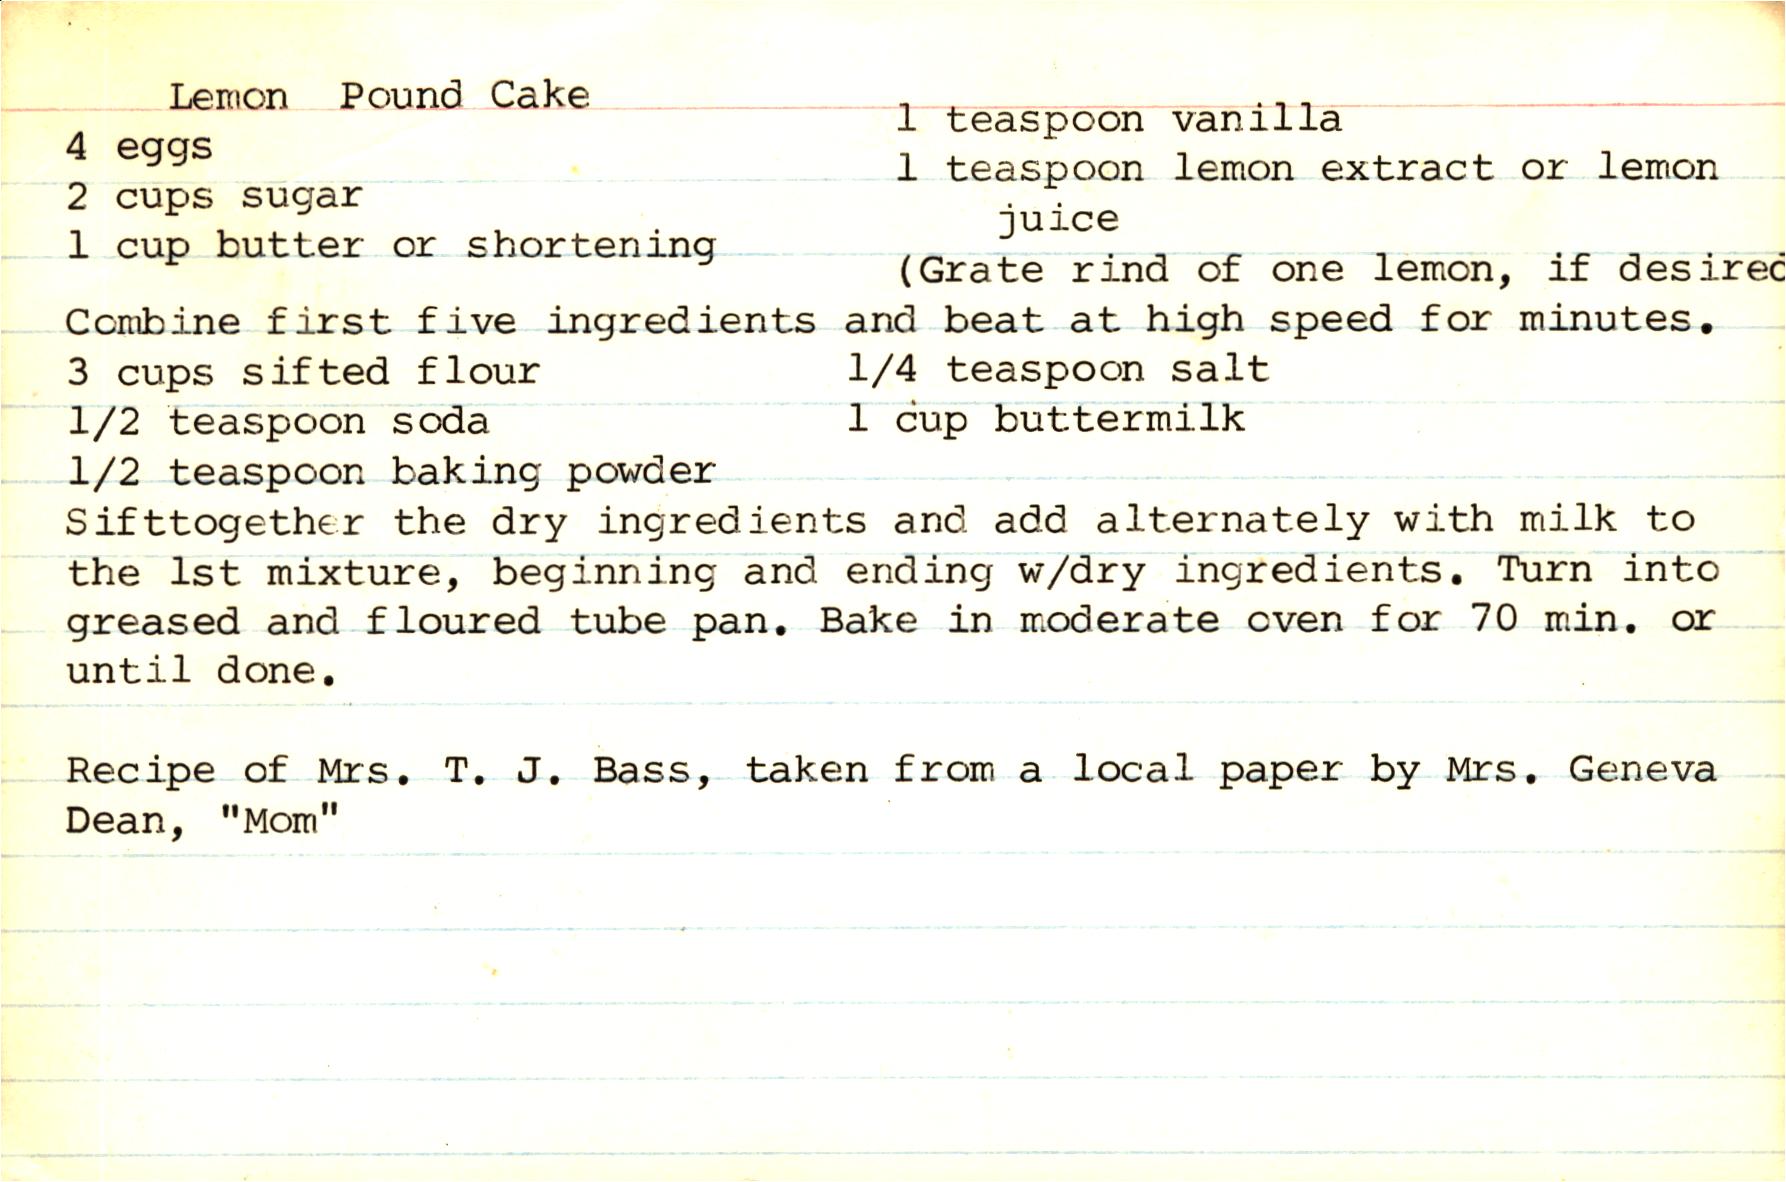 Lemon Pound Cake
4 eggs
2 cups sugar
1 cup butter or shortening
1 teaspoon vanilla
1 teaspoon lemon extract or lemon
juice
(Grate rind of one lemon, if desired
Combine first five ingredients and beat at high speed for minutes.
3 cups sifted flour
1/2 teaspoon soda
1/2 teaspoon baking powder
1/4 teaspoon salt
1 cup buttermilk
Sifttogether the dry ingredients and add alternately with milk to
the 1st mixture, beginning and ending w/dry ingredients. Turn into
greased and floured tube pan. Bake in moderate oven for 70 min. or
until done.
Recipe of Mrs. T. J. Bass, taken from a local paper by Mrs. Geneva
Dean, "Mom"